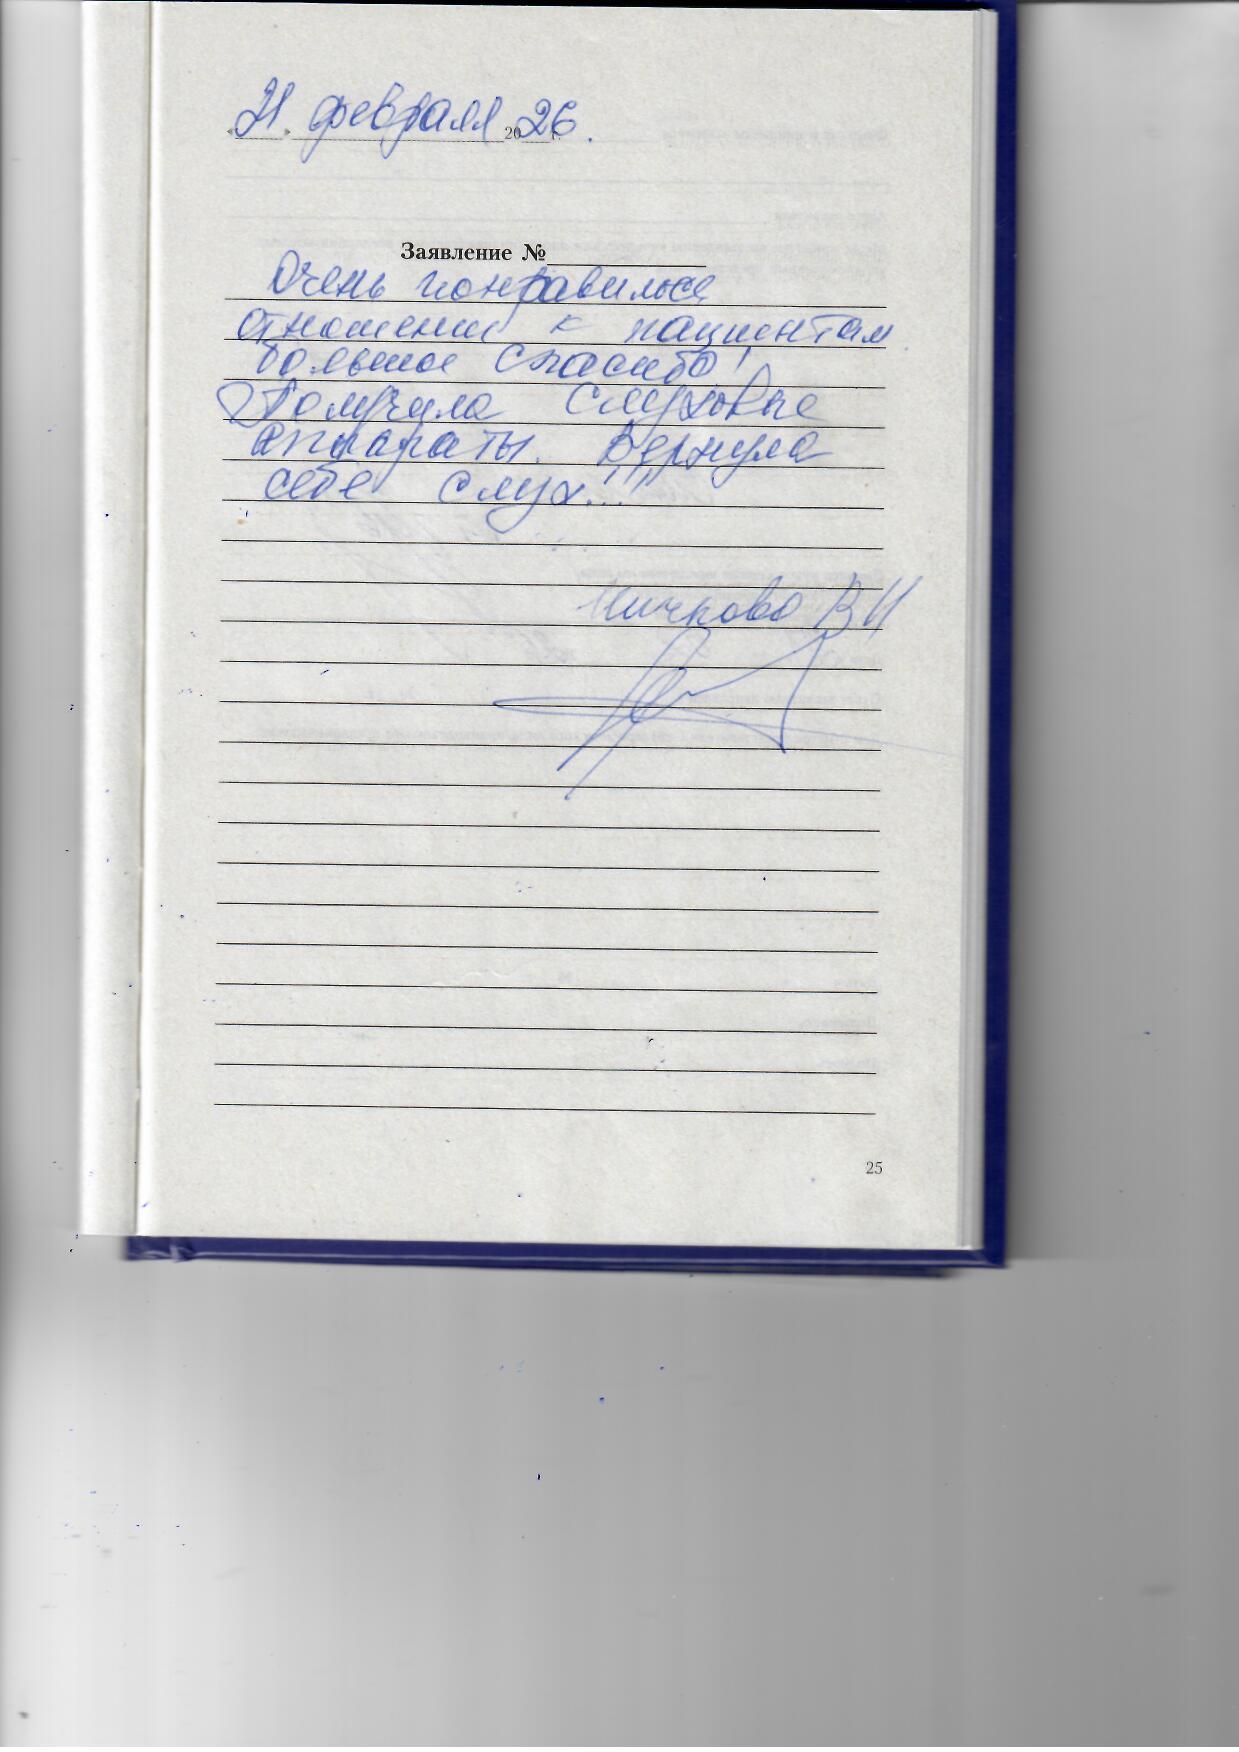 «21» февраля 2026 г.
Заявление №
Очень понравилось
отношение к пациентам
большое спасибо!
Получила слуховые
аппараты. Вернула
себе слух!!!
В И
25